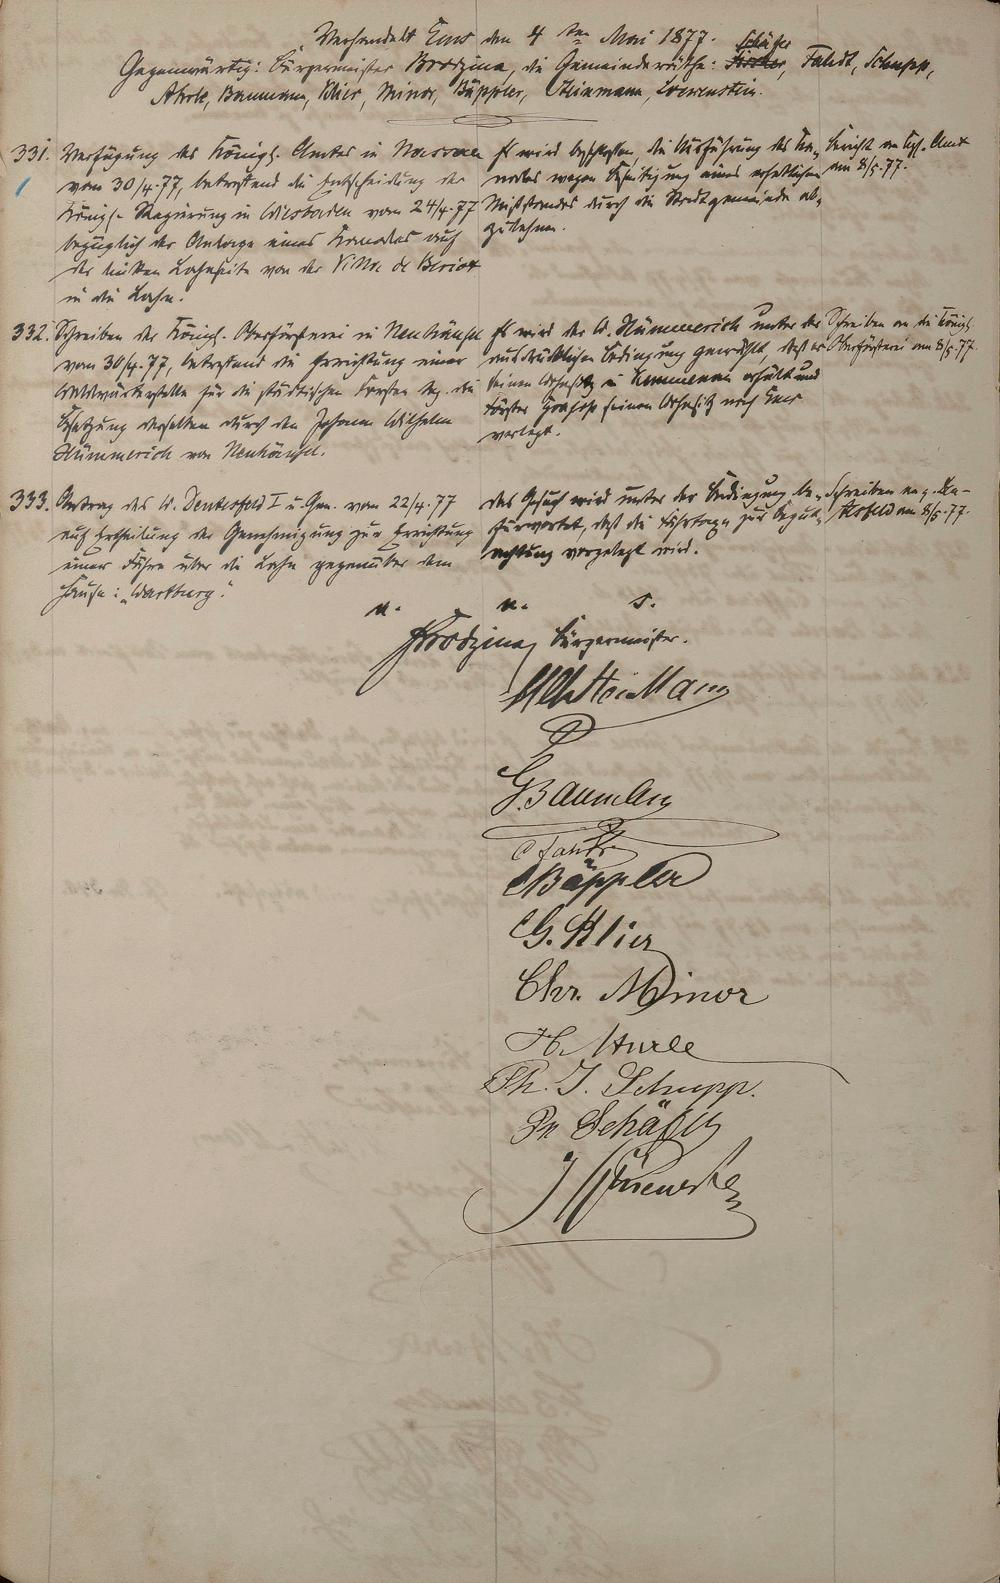 Verhandelt Ems den 4 ten Mai 1877.
Schäfer
Gegenwärtig: Bürgermeister Brodzina, die Gemeinderäthe: Fischer, Faldt, Schupp,
Baumann, Klier, Minor, Bäppler, Heinmann, Loewenstein.
331. Verfügung des Königl. Amtes in Nassau
vom 30/4.77, betreffend die Entscheidung der
Königl. Regierung in Wiesbaden vom 24/4.77
bezüglich der Anlage eines Kanales auf
der linken Lahnseite von der Villa de Beriot
in die Lahn.
Es wird beschlossen, die Ausführung des Ka-
nales wegen Beseitigung eines erheblichen
Mißstandes durch die Stadtgemeinde ab-
zulehnen.
Bericht an Kgl. Amt
am 8/5.77.
332. Schreiben der Königl. Oberförsterei in Neuhäusel
vom 30/4.77, betreffend die Errichtung einer
Waldwärterstelle für die städtischen Forsten resp. die
Besetzung derselben durch den Johann Wilhelm
Hümmerich von Neuhäusel.
Es wird der W. Hümmerich unter der
ausdrücklichen Bedingung gewählt, daß er
seinen Wohnsitz in Kemmenau erhält und
Förster seinen Wohnsitz nach Ems
verlegt.
Schreiben an die Königl.
Oberförsterei am 8/5.77.
333. Antrag des W. Denkersfeld I u. Gen. vom 22/4.77
auf Ertheilung der Genehmigung zur Errichtung
einer Fähre über die Lahn gegenüber dem
Hause: „Wartburg".
Das Gesuch wird unter der Bedingung be-
fürwortet, daß die Fährtaxe zur Begut-
achtung vorgelegt wird.
Schreiben an
am 8/5.77.
v. u. s.
Brodzina, Bürgermeister.
G. Baumann
Bäppler
G. Klier
Chr. Minor
Ph. J. Schupp.
Schäfer
J Löwenstein